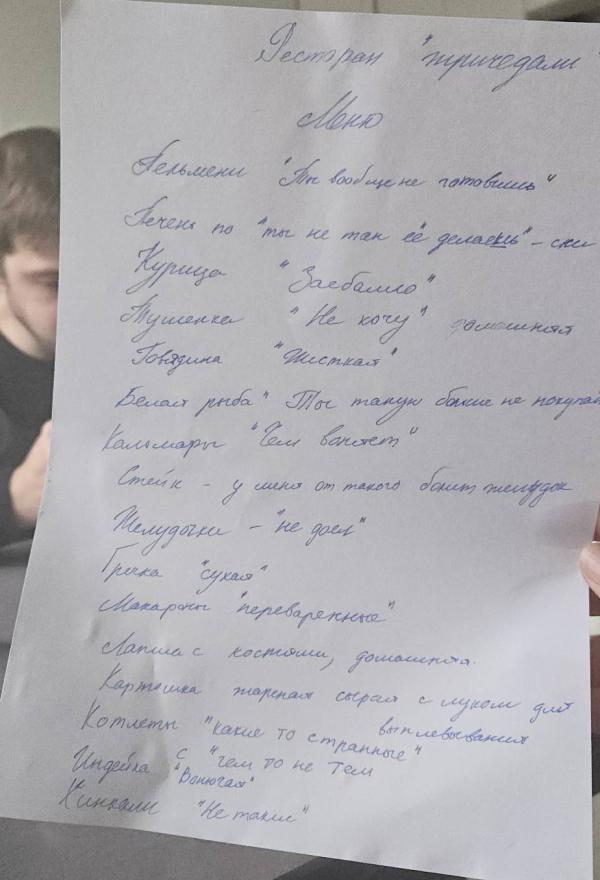 Ресторан "тричедали"
Меню
Пельмени "Ты вообще не готовишь"
Печень по "ты не так её делаешь" - ски
Курица "Заебалла"
Тушенка "Не хочу" домашняя
Говядина "Жисткая"
Белая рыба "Ты такую больше не покупай
Кальмары "Чем воняет"
Стейк - у меня от такого болит желудок
Желудочки - "не доел"
Гречка "сухая"
Макароны "переваренные"
Лапша с костями, домашняя.
Картошка жареная сырая с луком для
выплевывания
Котлеты "какие то странные"
Индейка с "чем то не тем
"Вонючая"
Хинкали "Не такие"